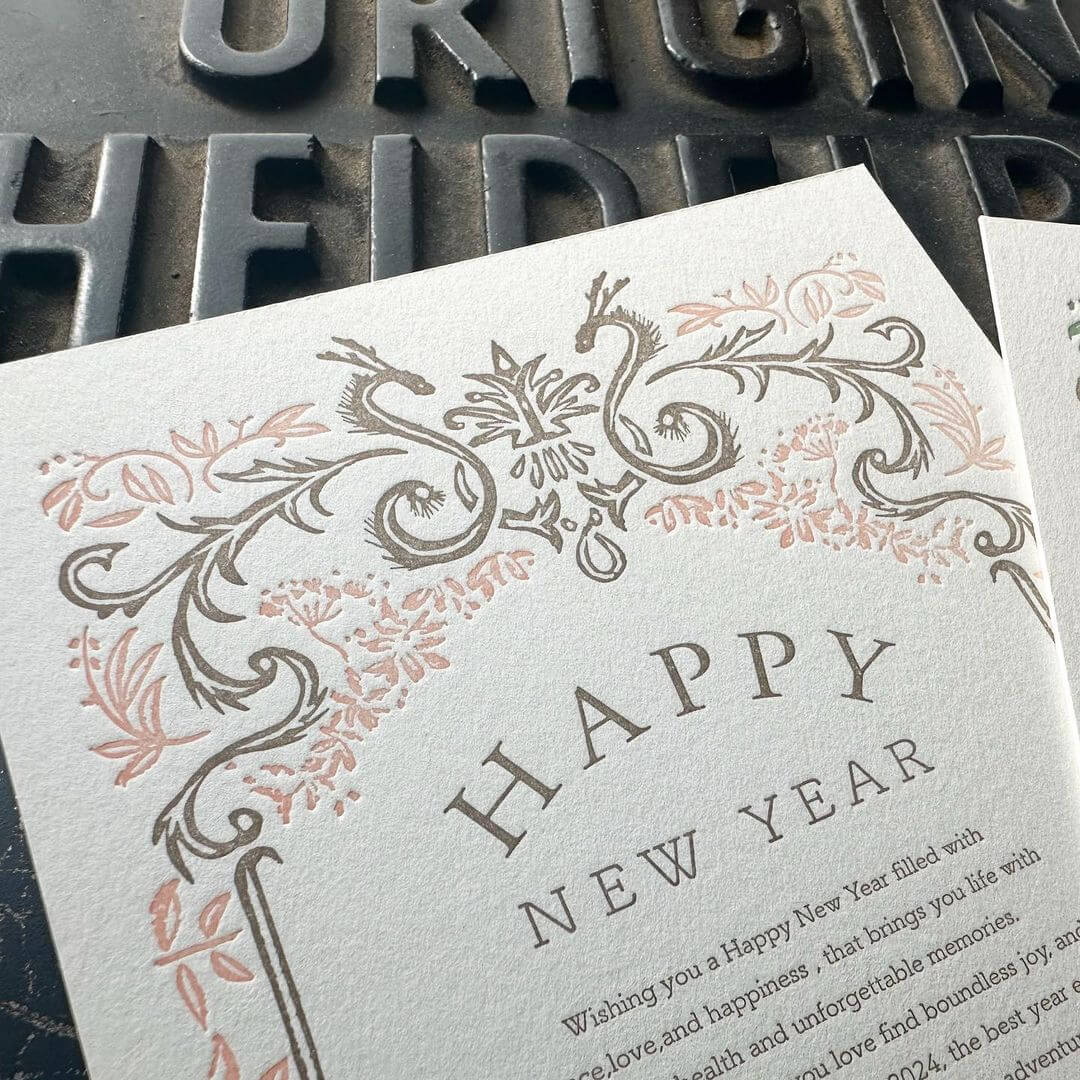 ORIGIN
HEIDELB
HAPPY
NEW YEAR
Wishing you a Happy New Year filled with
ce,love,and happiness , that brings you life with
health and unforgettable memories.
you love find boundless joy, and
2024, the best year e
adventu